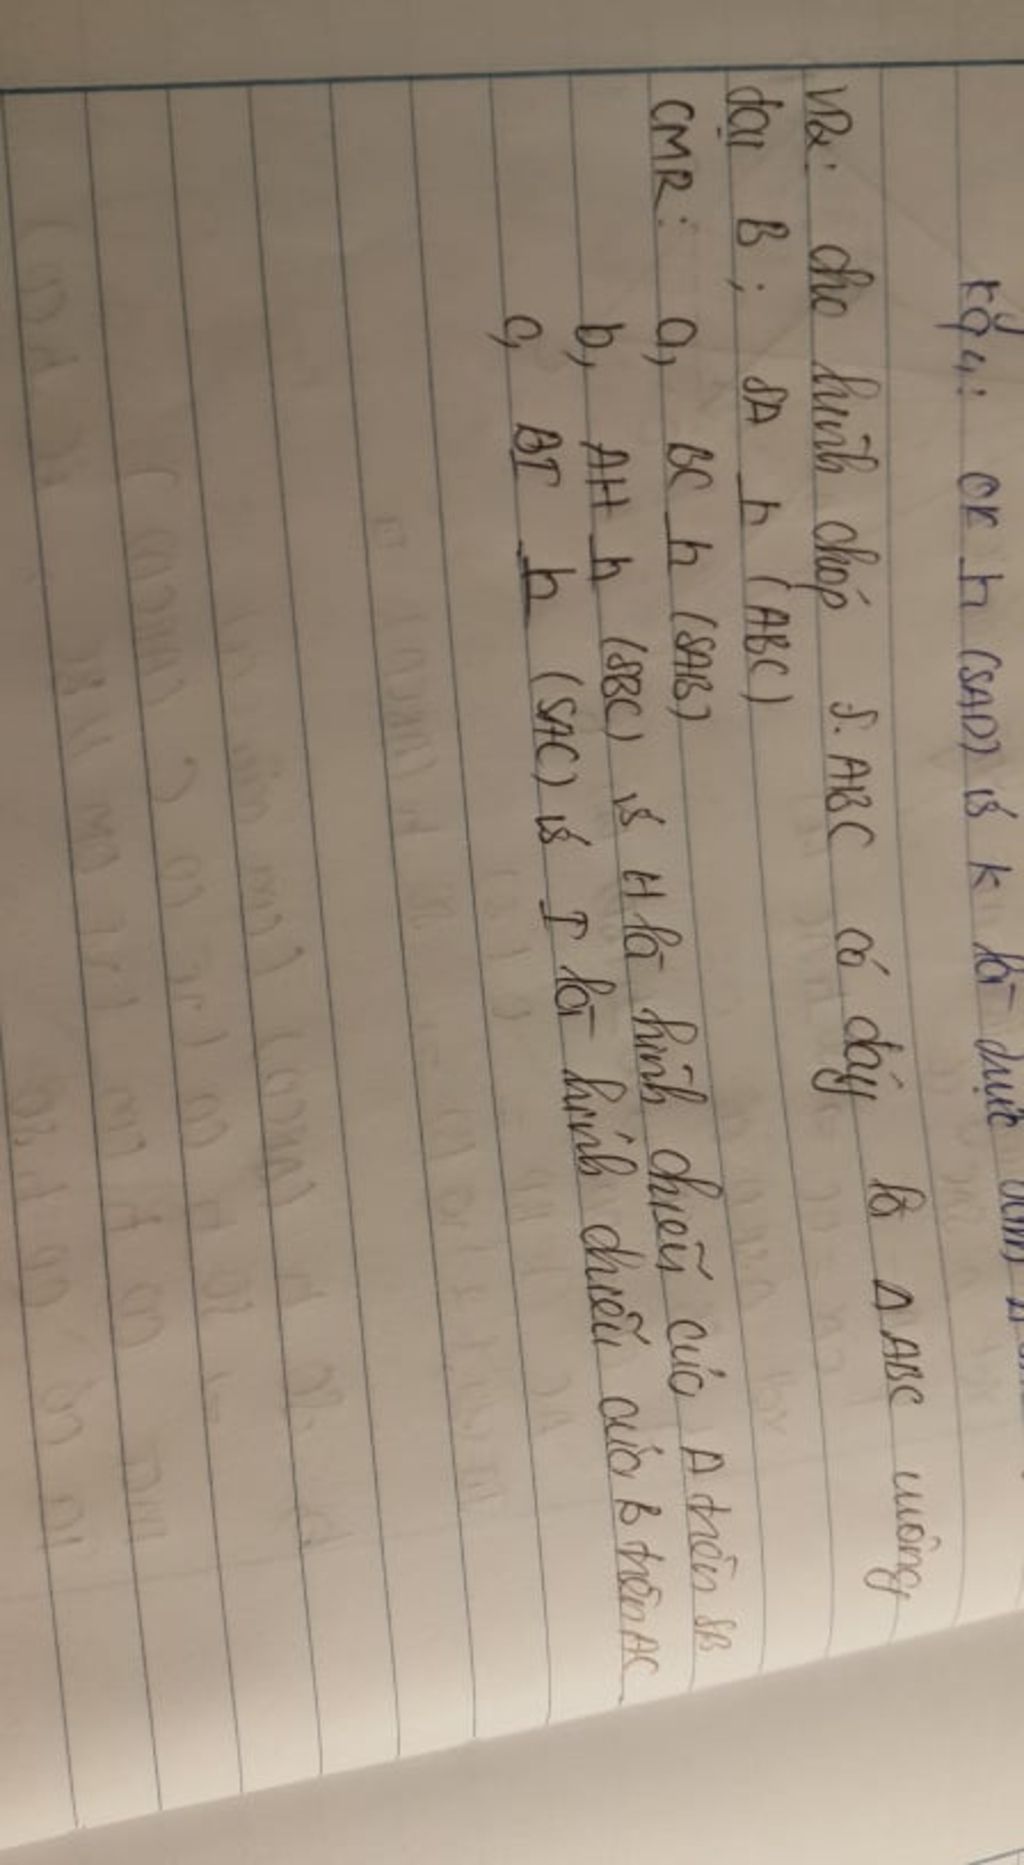 KQ 4: CK ⊥ (SAD) vs K là
VD2: cho hình chóp S.ABC có đáy là Δ ABC vuông
tại B; SA ⊥ (ABC)
CMR: a, BC ⊥ (SAB)
b, AH ⊥ (SBC) vs H là hình chiếu của A trên SB
c, BI ⊥ (SAC) vs I là hình chiếu của B trên AC